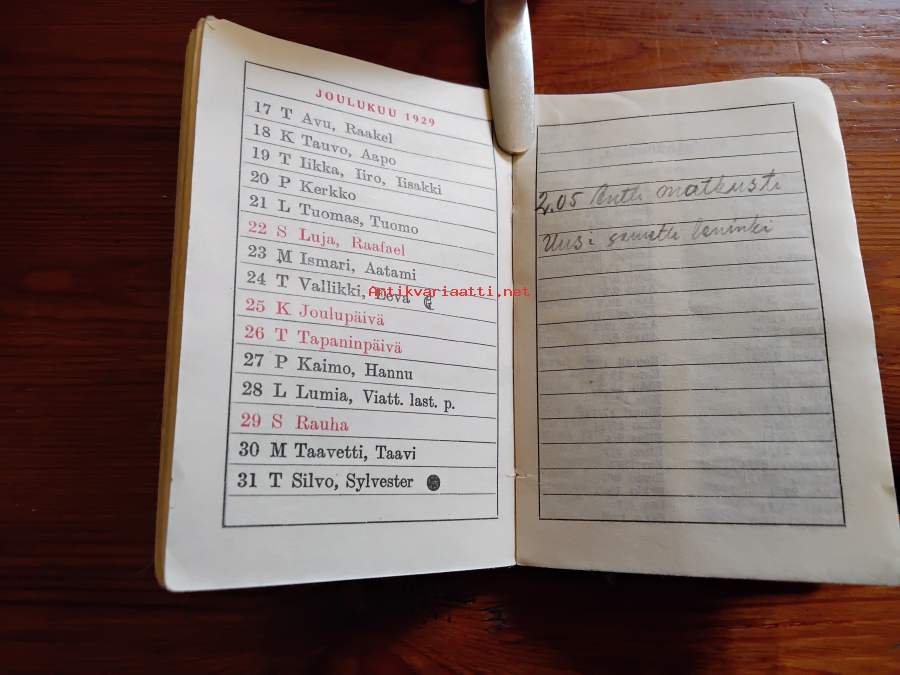 JOULUKUU 1929
17 T Avu, Raakel
18 K Tauvo, Aapo
19 T Iikka, Iiro, Iisakki
20 P Kerkko
21 L Tuomas, Tuomo
22 S Luja, Raafael
23 M Ismari, Aatami
24 T Vallikki, Eeva
25 K Joulupäivä
26 T Tapaninpäivä
27 P Kaimo, Hannu
28 L Lumia, Viatt. last. p.
29 S Rauha
30 M Taavetti, Taavi
31 T Silvo, Sylvester
Antikvariaatti.net
2,05 Antti matkusti
Uusi leninki